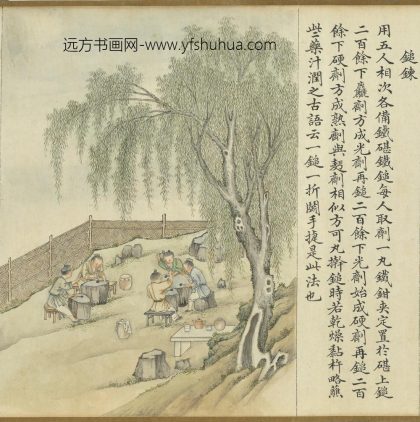 远方书画网-www.yfshuhua.com
鎚鍊
用五人相次各備鐵碪鐵鎚每人取劑一丸鐵鉗夾定置於碪上鎚
二百餘下麤劑方成光劑再鎚二百餘下光劑始成硬劑再鎚二百
餘下硬劑方成熟劑與麪劑相似方可丸擀鎚時若乾燥黏杵略蘸
些藥汁潤之古語云一鎚一折鬬手捷是此法也